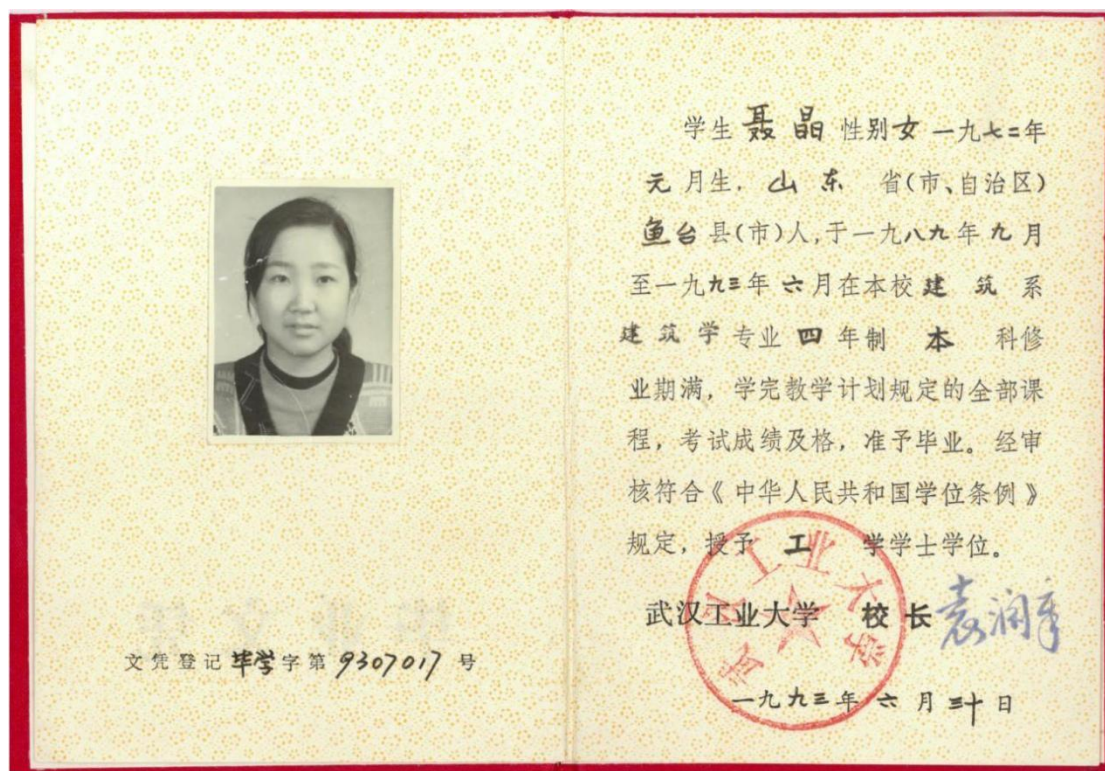 文凭登记毕学字第9307017号
学生聂晶性别女一九七二年
元月生,山东 省(市、自治区)
鱼台县(市)人,于一九八九年九月
至一九九三年六月在本校建筑系
建筑学专业四年制 本 科修
业期满,学完教学计划规定的全部课
程,考试成绩及格,准予毕业。经审
核符合《中华人民共和国学位条例》
规定,授予 工 学学士学位。
武汉工业大学 校长 袁润章
武汉工业大学
一九九三年六月三十日